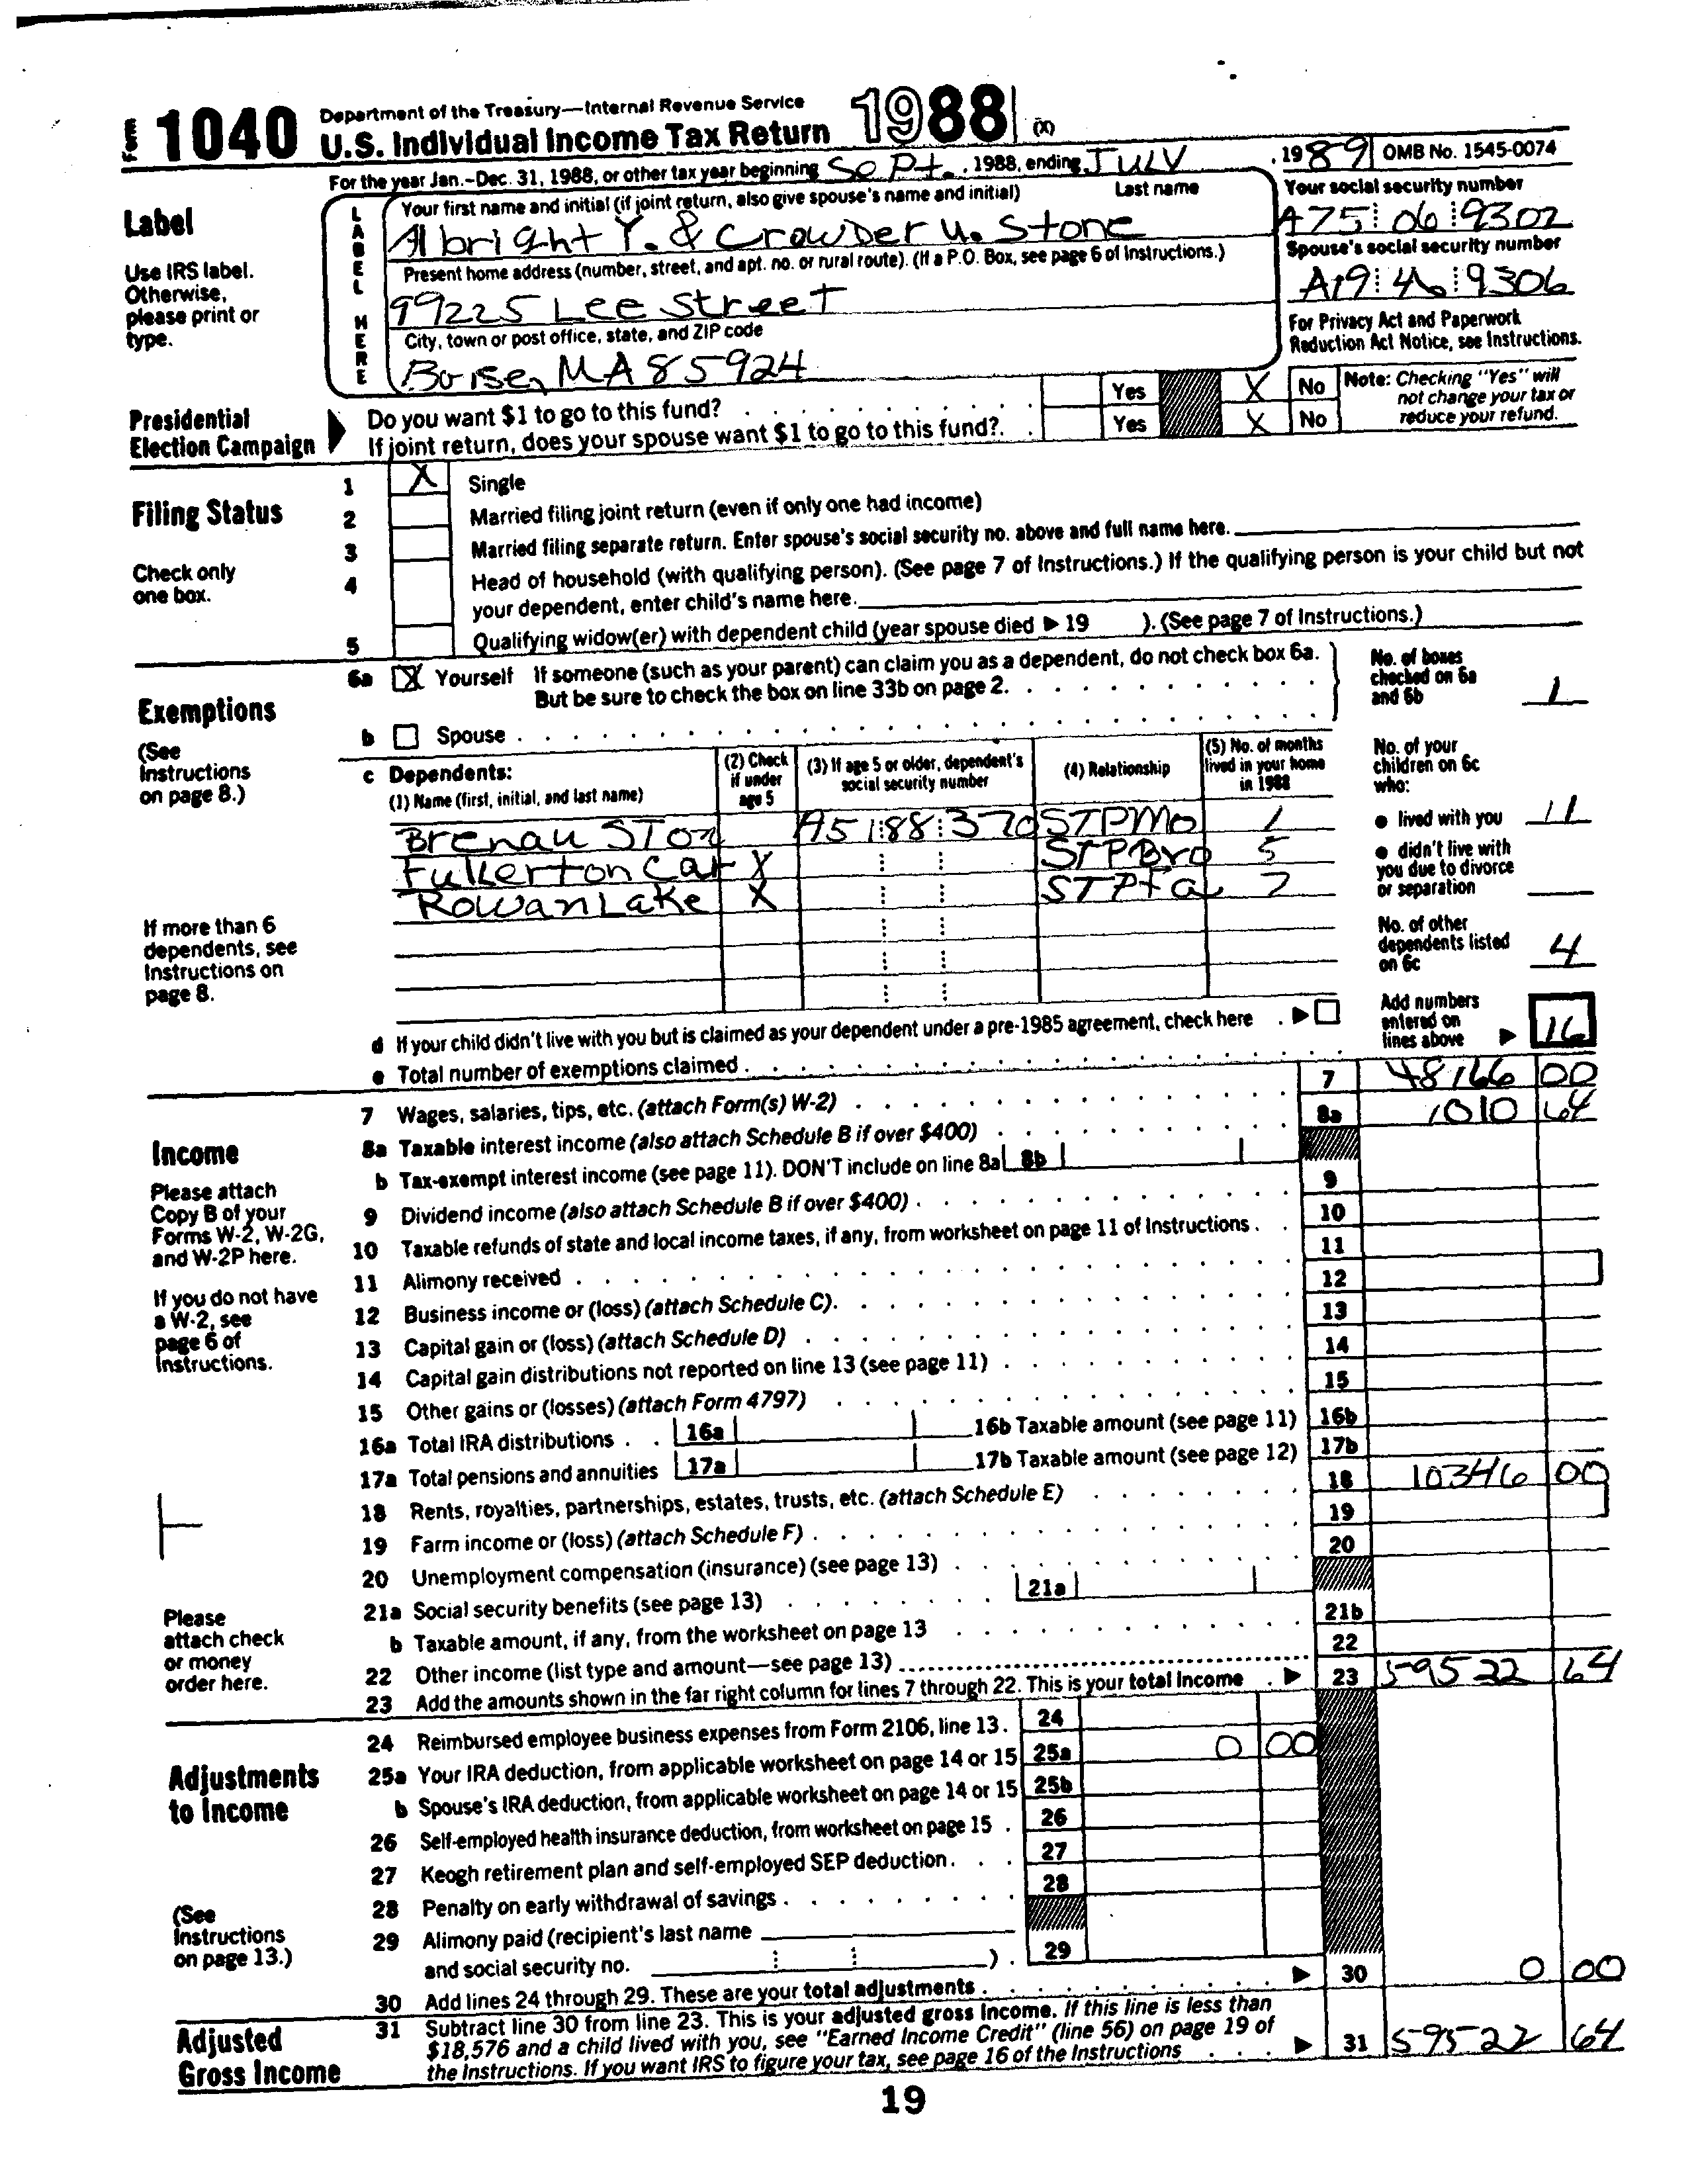 Form 1040 Department of the Treasury—Internal Revenue Service
U.S. Individual Income Tax Return 1988 (X)
For the year Jan.-Dec. 31, 1988, or other tax year beginning Sept. , 1988, ending JULY , 19 89 OMB No. 1545-0074
Label
Use IRS label.
Otherwise,
please print or
type.
LABEL HERE
Your first name and initial (if joint return, also give spouse's name and initial) Last name
Albright Y. & Crowder U. Stone
Present home address (number, street, and apt. no. or rural route). (If a P.O. Box, see page 6 of Instructions.)
99225 Lee Street
City, town or post office, state, and ZIP code
Boise, MA 85924
Your social security number
A75 06 9302
Spouse's social security number
A19 46 9306
For Privacy Act and Paperwork
Reduction Act Notice, see Instructions.
Presidential
Election Campaign
Do you want $1 to go to this fund? Yes X No
If joint return, does your spouse want $1 to go to this fund?. Yes X No
Note: Checking "Yes" will
not change your tax or
reduce your refund.
Filing Status
Check only
one box.
1 X Single
2 Married filing joint return (even if only one had income)
3 Married filing separate return. Enter spouse's social security no. above and full name here.
4 Head of household (with qualifying person). (See page 7 of Instructions.) If the qualifying person is your child but not
your dependent, enter child's name here.
5 Qualifying widow(er) with dependent child (year spouse died ▶ 19 ). (See page 7 of Instructions.)
Exemptions
(See
Instructions
on page 8.)
If more than 6
dependents, see
Instructions on
page 8.
6a X Yourself If someone (such as your parent) can claim you as a dependent, do not check box 6a.
But be sure to check the box on line 33b on page 2.
b Spouse
No. of boxes
checked on 6a
and 6b 1
c Dependents:
(1) Name (first, initial, and last name)
(2) Check
if under
age 5
(3) If age 5 or older, dependent's
social security number
(4) Relationship
(5) No. of months
lived in your home
in 1988
Brenau STon A51 88 370 STPMo 1
Fullerton Car X STPBro 5
Rowan Lake X STPFa 7
No. of your
children on 6c
who:
● lived with you 11
● didn't live with
you due to divorce
or separation
No. of other
dependents listed
on 6c 4
Add numbers
entered on
lines above ▶ 16
d If your child didn't live with you but is claimed as your dependent under a pre-1985 agreement, check here . ▶
e Total number of exemptions claimed
Income
Please attach
Copy B of your
Forms W-2, W-2G,
and W-2P here.
If you do not have
a W-2, see
page 6 of
Instructions.
Please
attach check
or money
order here.
7 Wages, salaries, tips, etc. (attach Form(s) W-2) 7 48166 00
8a Taxable interest income (also attach Schedule B if over $400) 8a 1010 64
b Tax-exempt interest income (see page 11). DON'T include on line 8a 8b
9 Dividend income (also attach Schedule B if over $400) 9
10 Taxable refunds of state and local income taxes, if any, from worksheet on page 11 of Instructions 10
11 Alimony received 11
12 Business income or (loss) (attach Schedule C) 12
13 Capital gain or (loss) (attach Schedule D) 13
14 Capital gain distributions not reported on line 13 (see page 11) 14
15 Other gains or (losses) (attach Form 4797) 15
16a Total IRA distributions 16a 16b Taxable amount (see page 11) 16b
17a Total pensions and annuities 17a 17b Taxable amount (see page 12) 17b
18 Rents, royalties, partnerships, estates, trusts, etc. (attach Schedule E) 18 10346 00
19 Farm income or (loss) (attach Schedule F) 19
20 Unemployment compensation (insurance) (see page 13) 20
21a Social security benefits (see page 13) 21a
b Taxable amount, if any, from the worksheet on page 13 21b
22 Other income (list type and amount—see page 13) 22
23 Add the amounts shown in the far right column for lines 7 through 22. This is your total income ▶ 23 59522 64
Adjustments
to Income
(See
Instructions
on page 13.)
24 Reimbursed employee business expenses from Form 2106, line 13 24
25a Your IRA deduction, from applicable worksheet on page 14 or 15 25a 0 00
b Spouse's IRA deduction, from applicable worksheet on page 14 or 15 25b
26 Self-employed health insurance deduction, from worksheet on page 15 26
27 Keogh retirement plan and self-employed SEP deduction 27
28 Penalty on early withdrawal of savings 28
29 Alimony paid (recipient's last name
and social security no. ) 29
30 Add lines 24 through 29. These are your total adjustments ▶ 30 0 00
Adjusted
Gross Income
31 Subtract line 30 from line 23. This is your adjusted gross income. If this line is less than
$18,576 and a child lived with you, see "Earned Income Credit" (line 56) on page 19 of
the Instructions. If you want IRS to figure your tax, see page 16 of the Instructions ▶ 31 59522 64
19